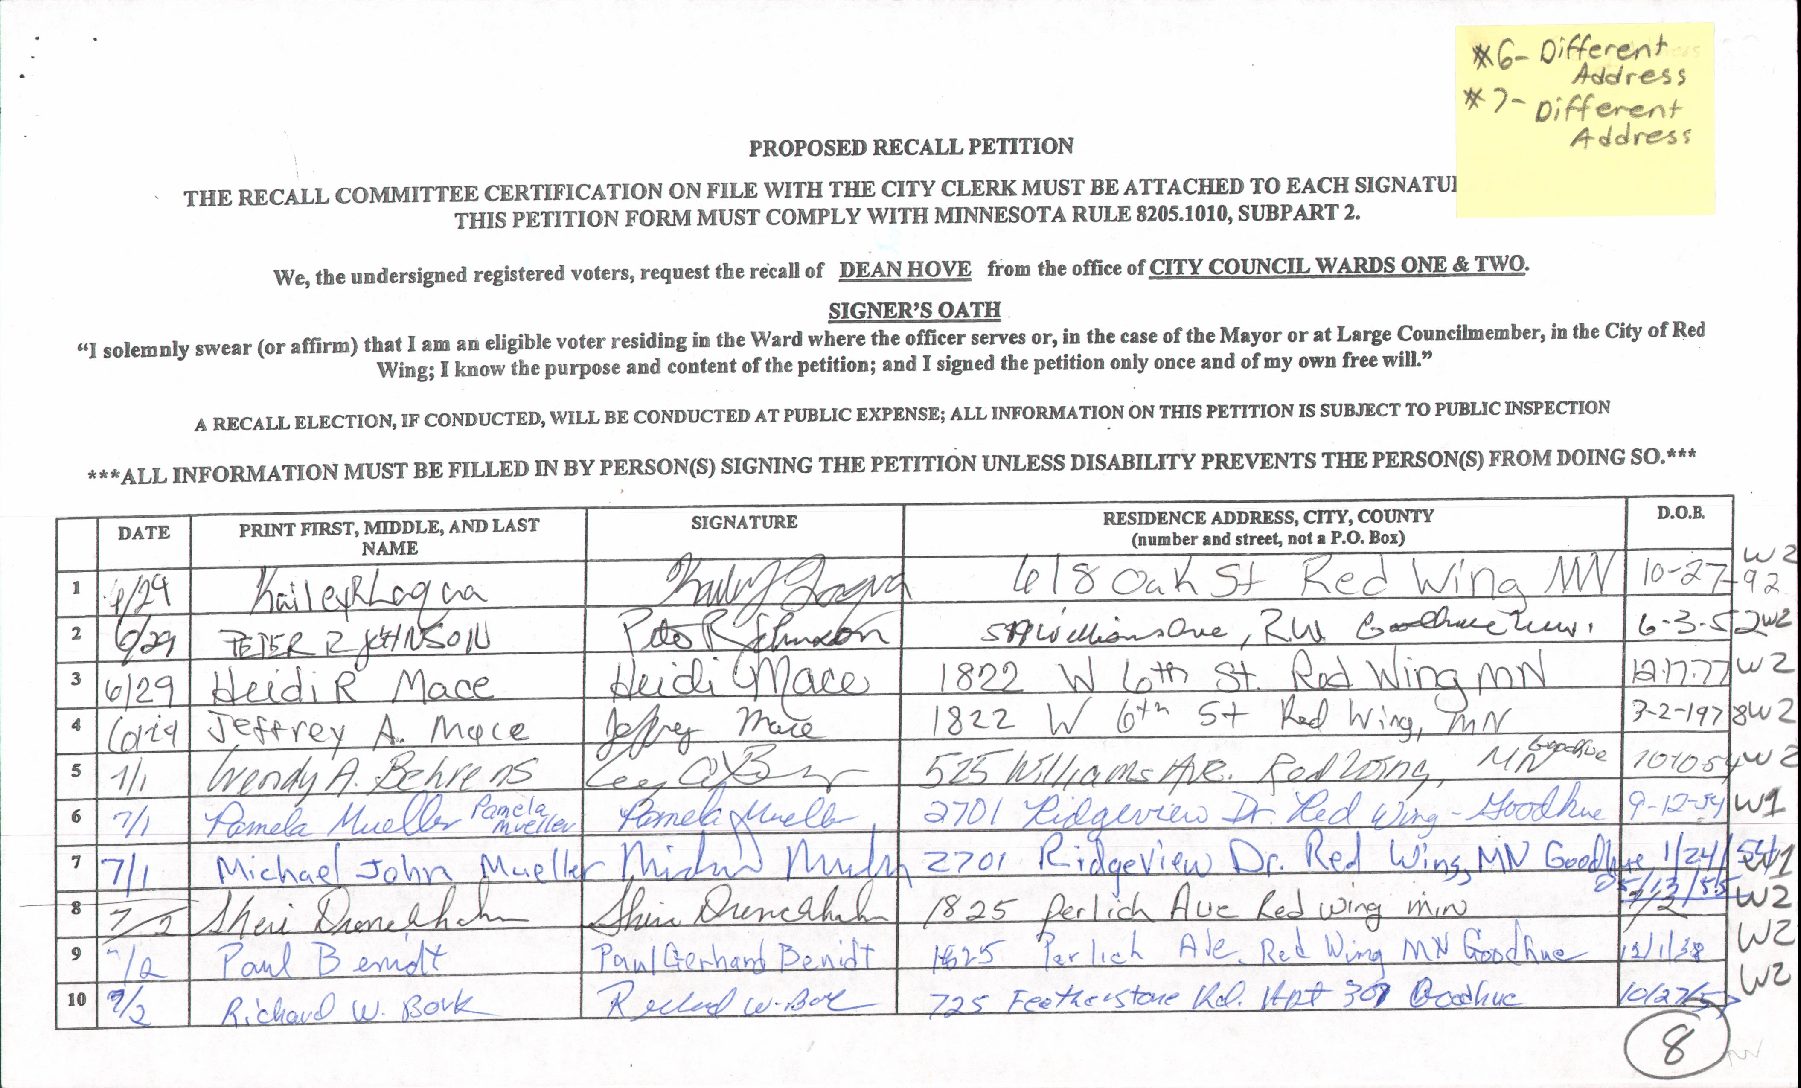 *6- Different
Address
*7- Different
Address
PROPOSED RECALL PETITION
THE RECALL COMMITTEE CERTIFICATION ON FILE WITH THE CITY CLERK MUST BE ATTACHED TO EACH
THIS PETITION FORM MUST COMPLY WITH MINNESOTA RULE 8205.1010, SUBPART 2.
We, the undersigned registered voters, request the recall of DEAN HOVE from the office of CITY COUNCIL WARDS ONE & TWO.
SIGNER'S OATH
"I solemnly swear (or affirm) that I am an eligible voter residing in the Ward where the officer serves or, in the case of the Mayor or at Large Councilmember, in the City of Red
Wing; I know the purpose and content of the petition; and I signed the petition only once and of my own free will."
A RECALL ELECTION, IF CONDUCTED, WILL BE CONDUCTED AT PUBLIC EXPENSE; ALL INFORMATION ON THIS PETITION IS SUBJECT TO PUBLIC INSPECTION
***ALL INFORMATION MUST BE FILLED IN BY PERSON(S) SIGNING THE PETITION UNLESS DISABILITY PREVENTS THE PERSON(S) FROM DOING SO.***
DATE PRINT FIRST, MIDDLE, AND LAST NAME SIGNATURE RESIDENCE ADDRESS, CITY, COUNTY (number and street, not a P.O. Box) D.O.B.
1 6/29 618 Oak St Red Wing MN 10-27-92 W2
2 6/29 PETER R JOHNSON Peter R Johnson Williams Ave, R.W. 6-3-52 W2
3 6/29 Heidi R Mace Heidi Mace 1822 W 6th St. Red Wing MN 12-17-77 W2
4 Jeffrey A. Mace Jeffrey Mace 1822 W 6th St Red Wing, MN 3-2-1978 W2
5 7/1 Wendy A. Behrens 525 Williams Ave. Red Wing, MN Goodhue W2
6 7/1 Pamela Mueller Pamela Mueller Pamela Mueller 2701 Ridgeview Dr. Red Wing - Goodhue 9-12-54 W1
7 7/1 Michael John Mueller 2701 Ridgeview Dr. Red Wing, MN Goodhue 1/24/54 W1
8 7/2 Sheri 1825 Perlich Ave Red Wing min 05/13/55 W2
9 7/2 Paul Benidt Paul Gerhard Benidt 1825 Perlich Ave. Red Wing MN Goodhue 12/1/38 W2
10 7/2 Richard W. Bork Richard W. Bork 725 Featherstone Rd. Apt 307 Goodhue 10/27/57 W2
8